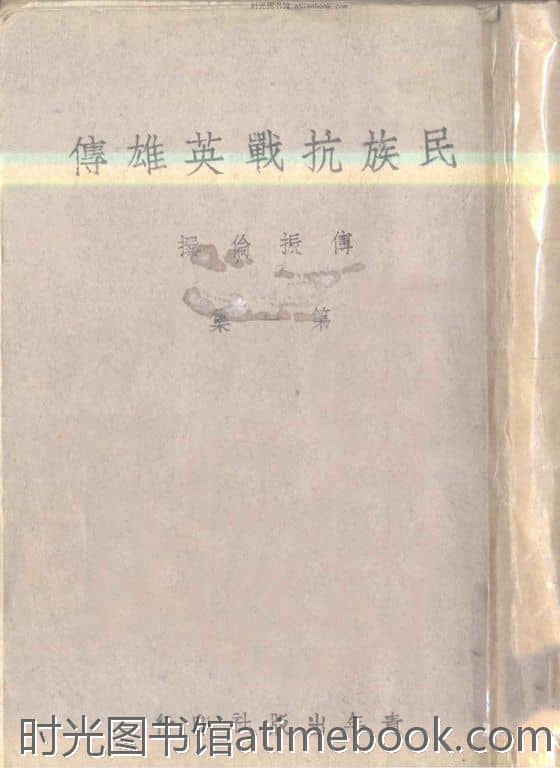 时光图书馆 atimebook.com
民族抗戰英雄傳
傅振倫撰
第一集
青年出版社
时光图书馆atimebook.com